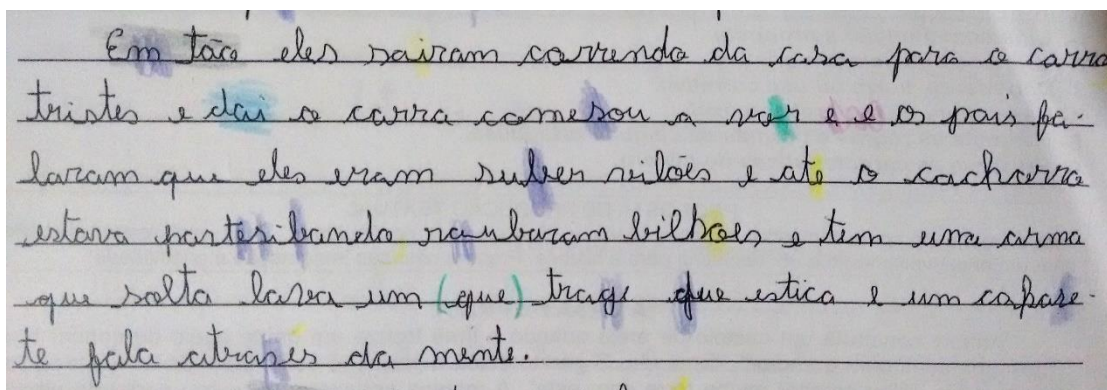 Em tão eles sairam correndo da casa para o carro
tristes e dai o carro comesou a voar e e os pais fa-
laram que eles eram suber vilões e ate o cachorro
estava partesibando roubaram bilhões e tem uma arma
que solta lasea um (que) trage que estica e um capase-
te fala atraves da mente.